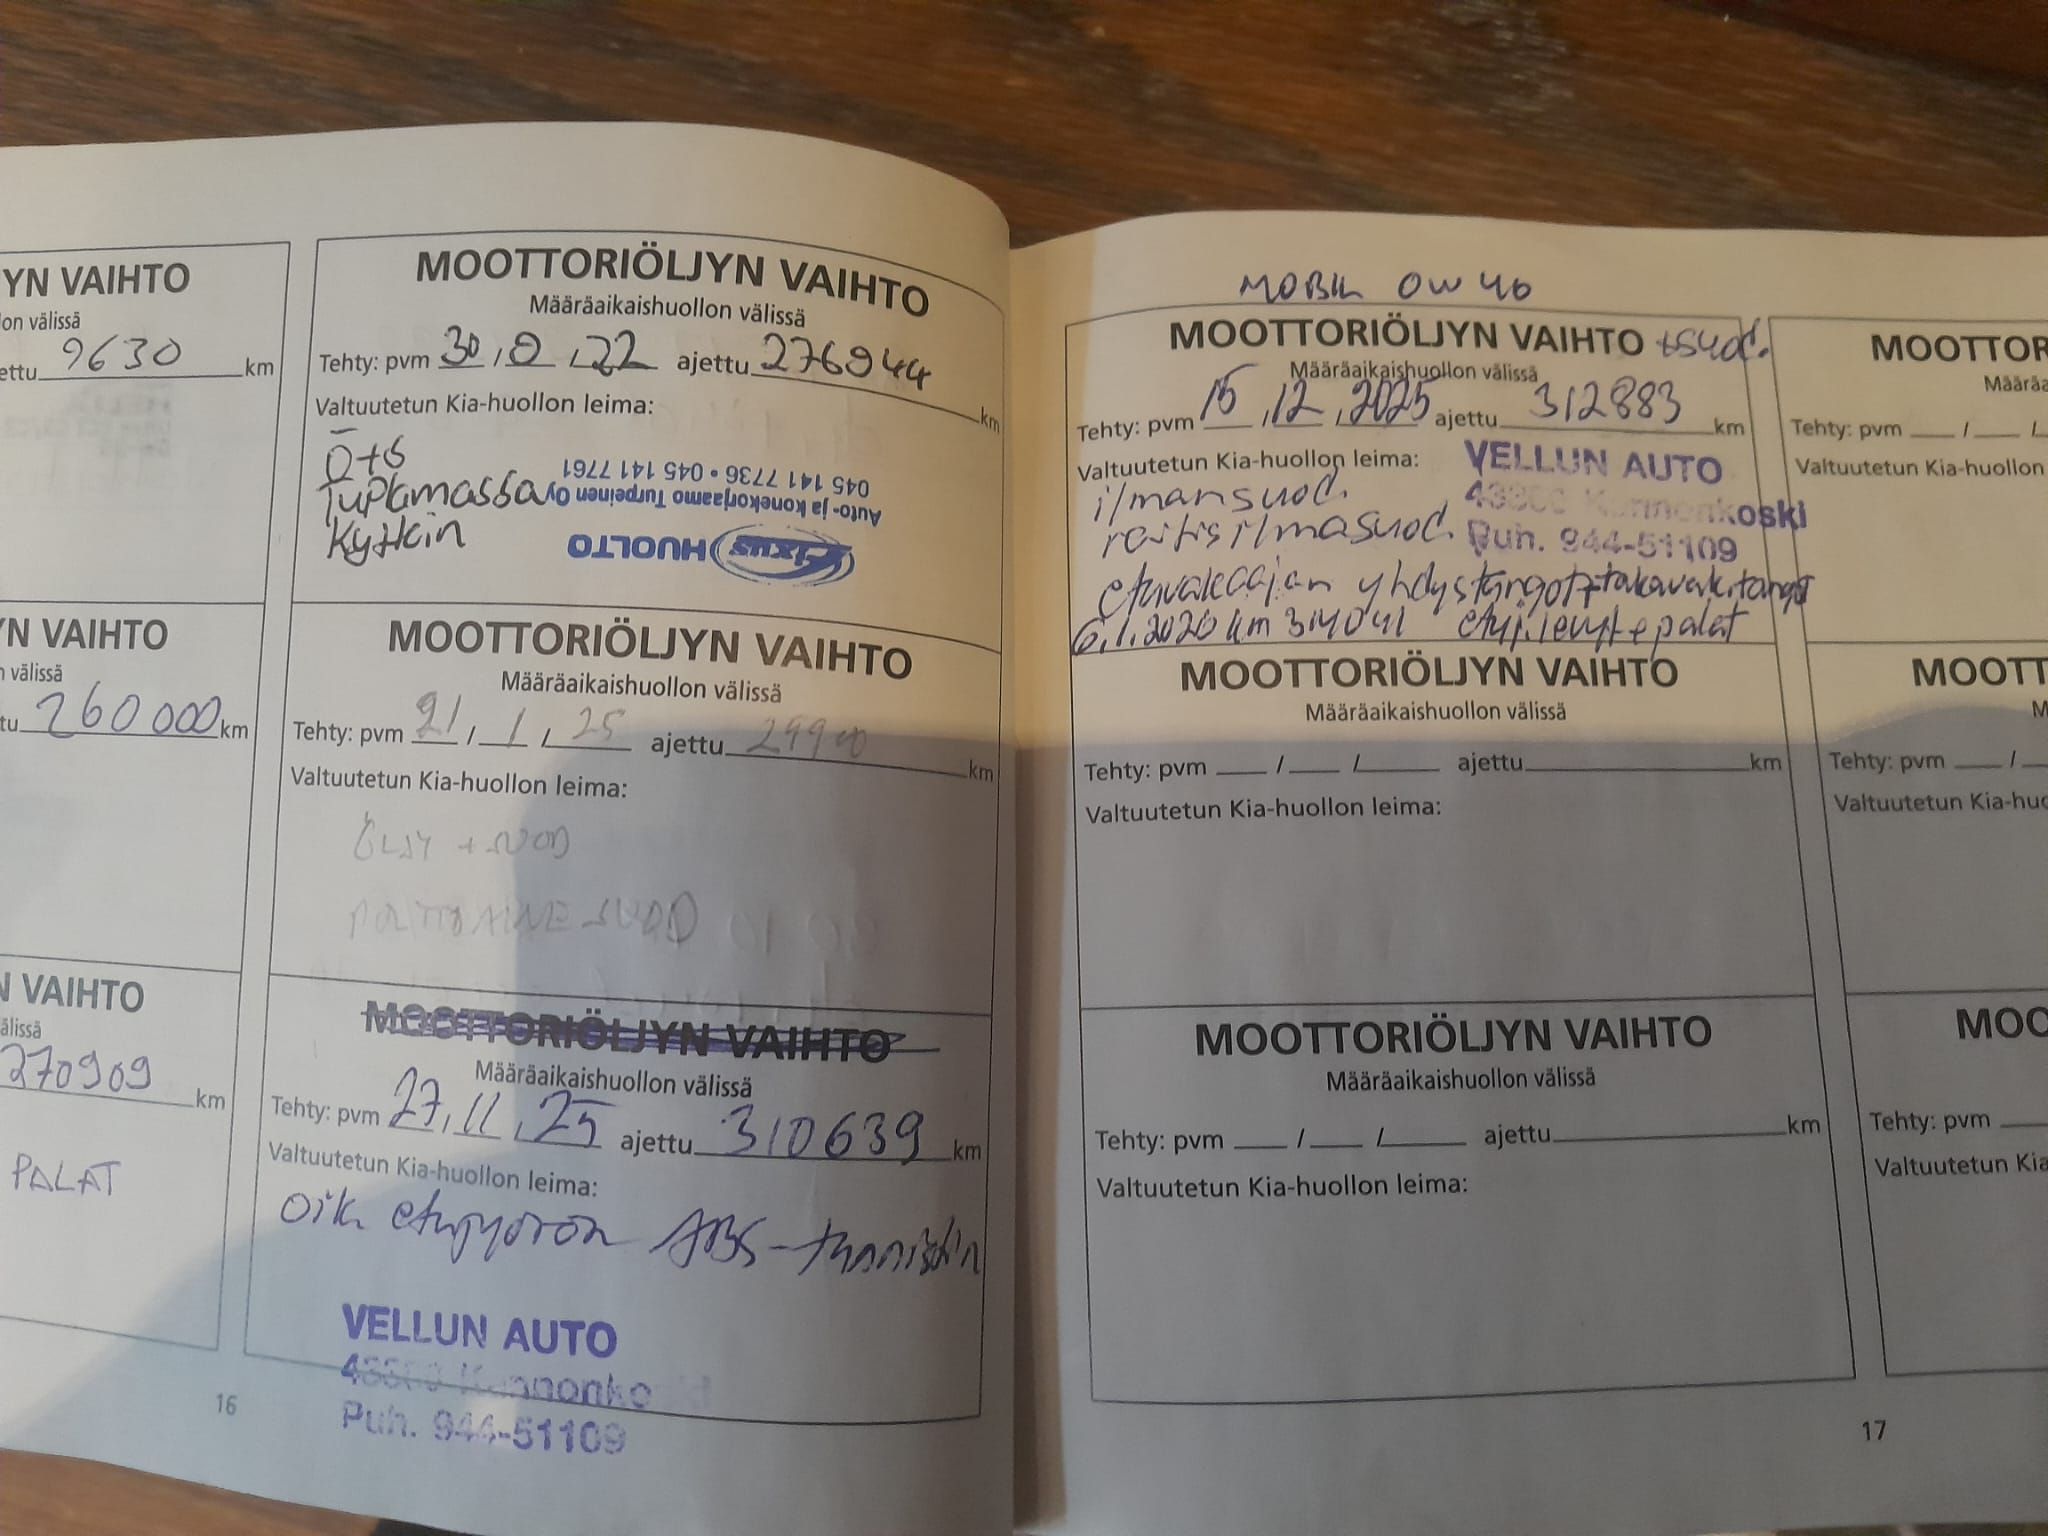 YN VAIHTO
on välissä
ettu 9630 km
YN VAIHTO
välissä
tu 260 000 km
N VAIHTO
älissä
270909 km
PALAT
MOOTTORIÖLJYN VAIHTO
Määräaikaishuollon välissä
Tehty: pvm 30, 0, 22 ajettu 276944 km
Valtuutetun Kia-huollon leima:
Ö+S
Tuplamassa
Kytkin
Fixus HUOLTO
Auto- ja konekorjaamo Turpeinen Oy
045 141 7736 • 045 141 7761
MOOTTORIÖLJYN VAIHTO
Määräaikaishuollon välissä
Tehty: pvm 21 / 1 / 25 ajettu km
Valtuutetun Kia-huollon leima:
ÖLJY + SUOD
POLTTOAINE SUOD
MOOTTORIÖLJYN VAIHTO
Määräaikaishuollon välissä
Tehty: pvm 27, 11, 25 ajettu 310639 km
Valtuutetun Kia-huollon leima:
oik etupyörön ABS-tunnistin
VELLUN AUTO
Puh. 944-51109
16
MOBIL 0W40
MOOTTORIÖLJYN VAIHTO +suod.
Määräaikaishuollon välissä
Tehty: pvm 15, 12, 2025 ajettu 312883 km
Valtuutetun Kia-huollon leima:
VELLUN AUTO
43300 Kannonkoski
Puh. 944-51109
ilmansuod.
raitisilmasuod.
etuvakaajan yhdystangot+takavak.tango
6.1.2026 km 314041 etuj.levyt+palat
MOOTTORIÖLJYN VAIHTO
Määräaikaishuollon välissä
Tehty: pvm / / ajettu km
Valtuutetun Kia-huollon leima:
MOOTTORIÖLJYN VAIHTO
Määräaikaishuollon välissä
Tehty: pvm / / ajettu km
Valtuutetun Kia-huollon leima:
MOOTTOR
Määräa
Tehty: pvm / /
Valtuutetun Kia-huollon
MOOTT
M
Tehty: pvm /
Valtuutetun Kia-huo
MOO
Tehty: pvm
Valtuutetun Kia
17